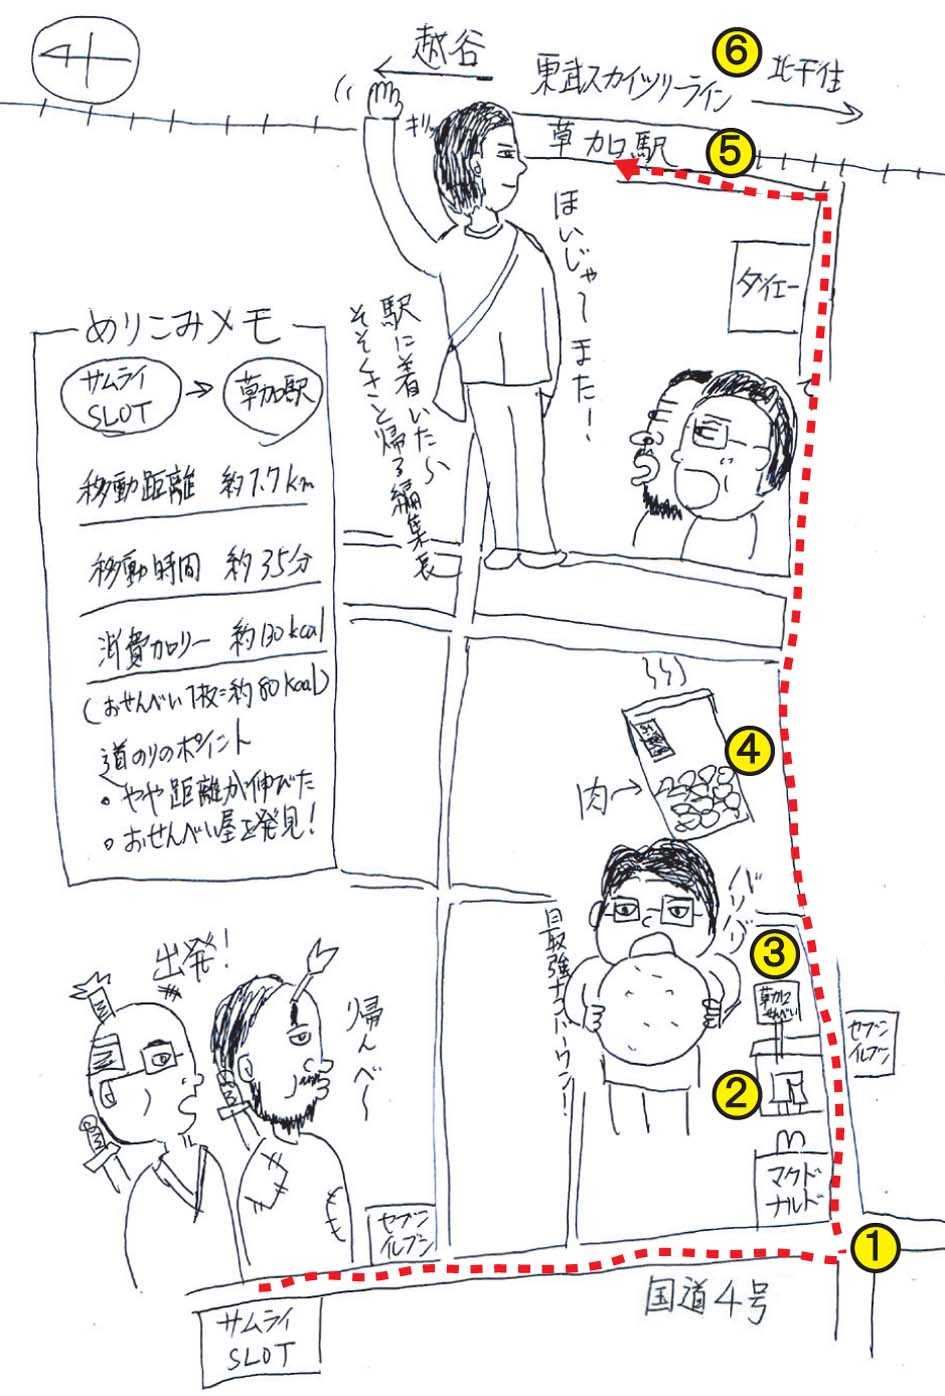 越谷
⑥
北千住
東武スカイツリーライン
キリッ
草加駅
⑤
ほいじゃ〜また!
ダイエー
駅に着いたら
そそくさと帰る編集長
めりこみメモ
サムライ
SLOT
→
草加駅
移動距離 約1.7km
移動時間 約35分
消費カロリー 約130kcal
(おせんべい1枚=約80kcal)
道のりのポイント
・やや距離が伸びた
・おせんべい屋を発見!
④
肉→
バリバリ
最強ナンバーワン!
③
草加
せんべい
セブン
イレブン
②
出発!
帰んべ〜
マクド
ナルド
セブン
イレブン
①
国道4号
サムライ
SLOT